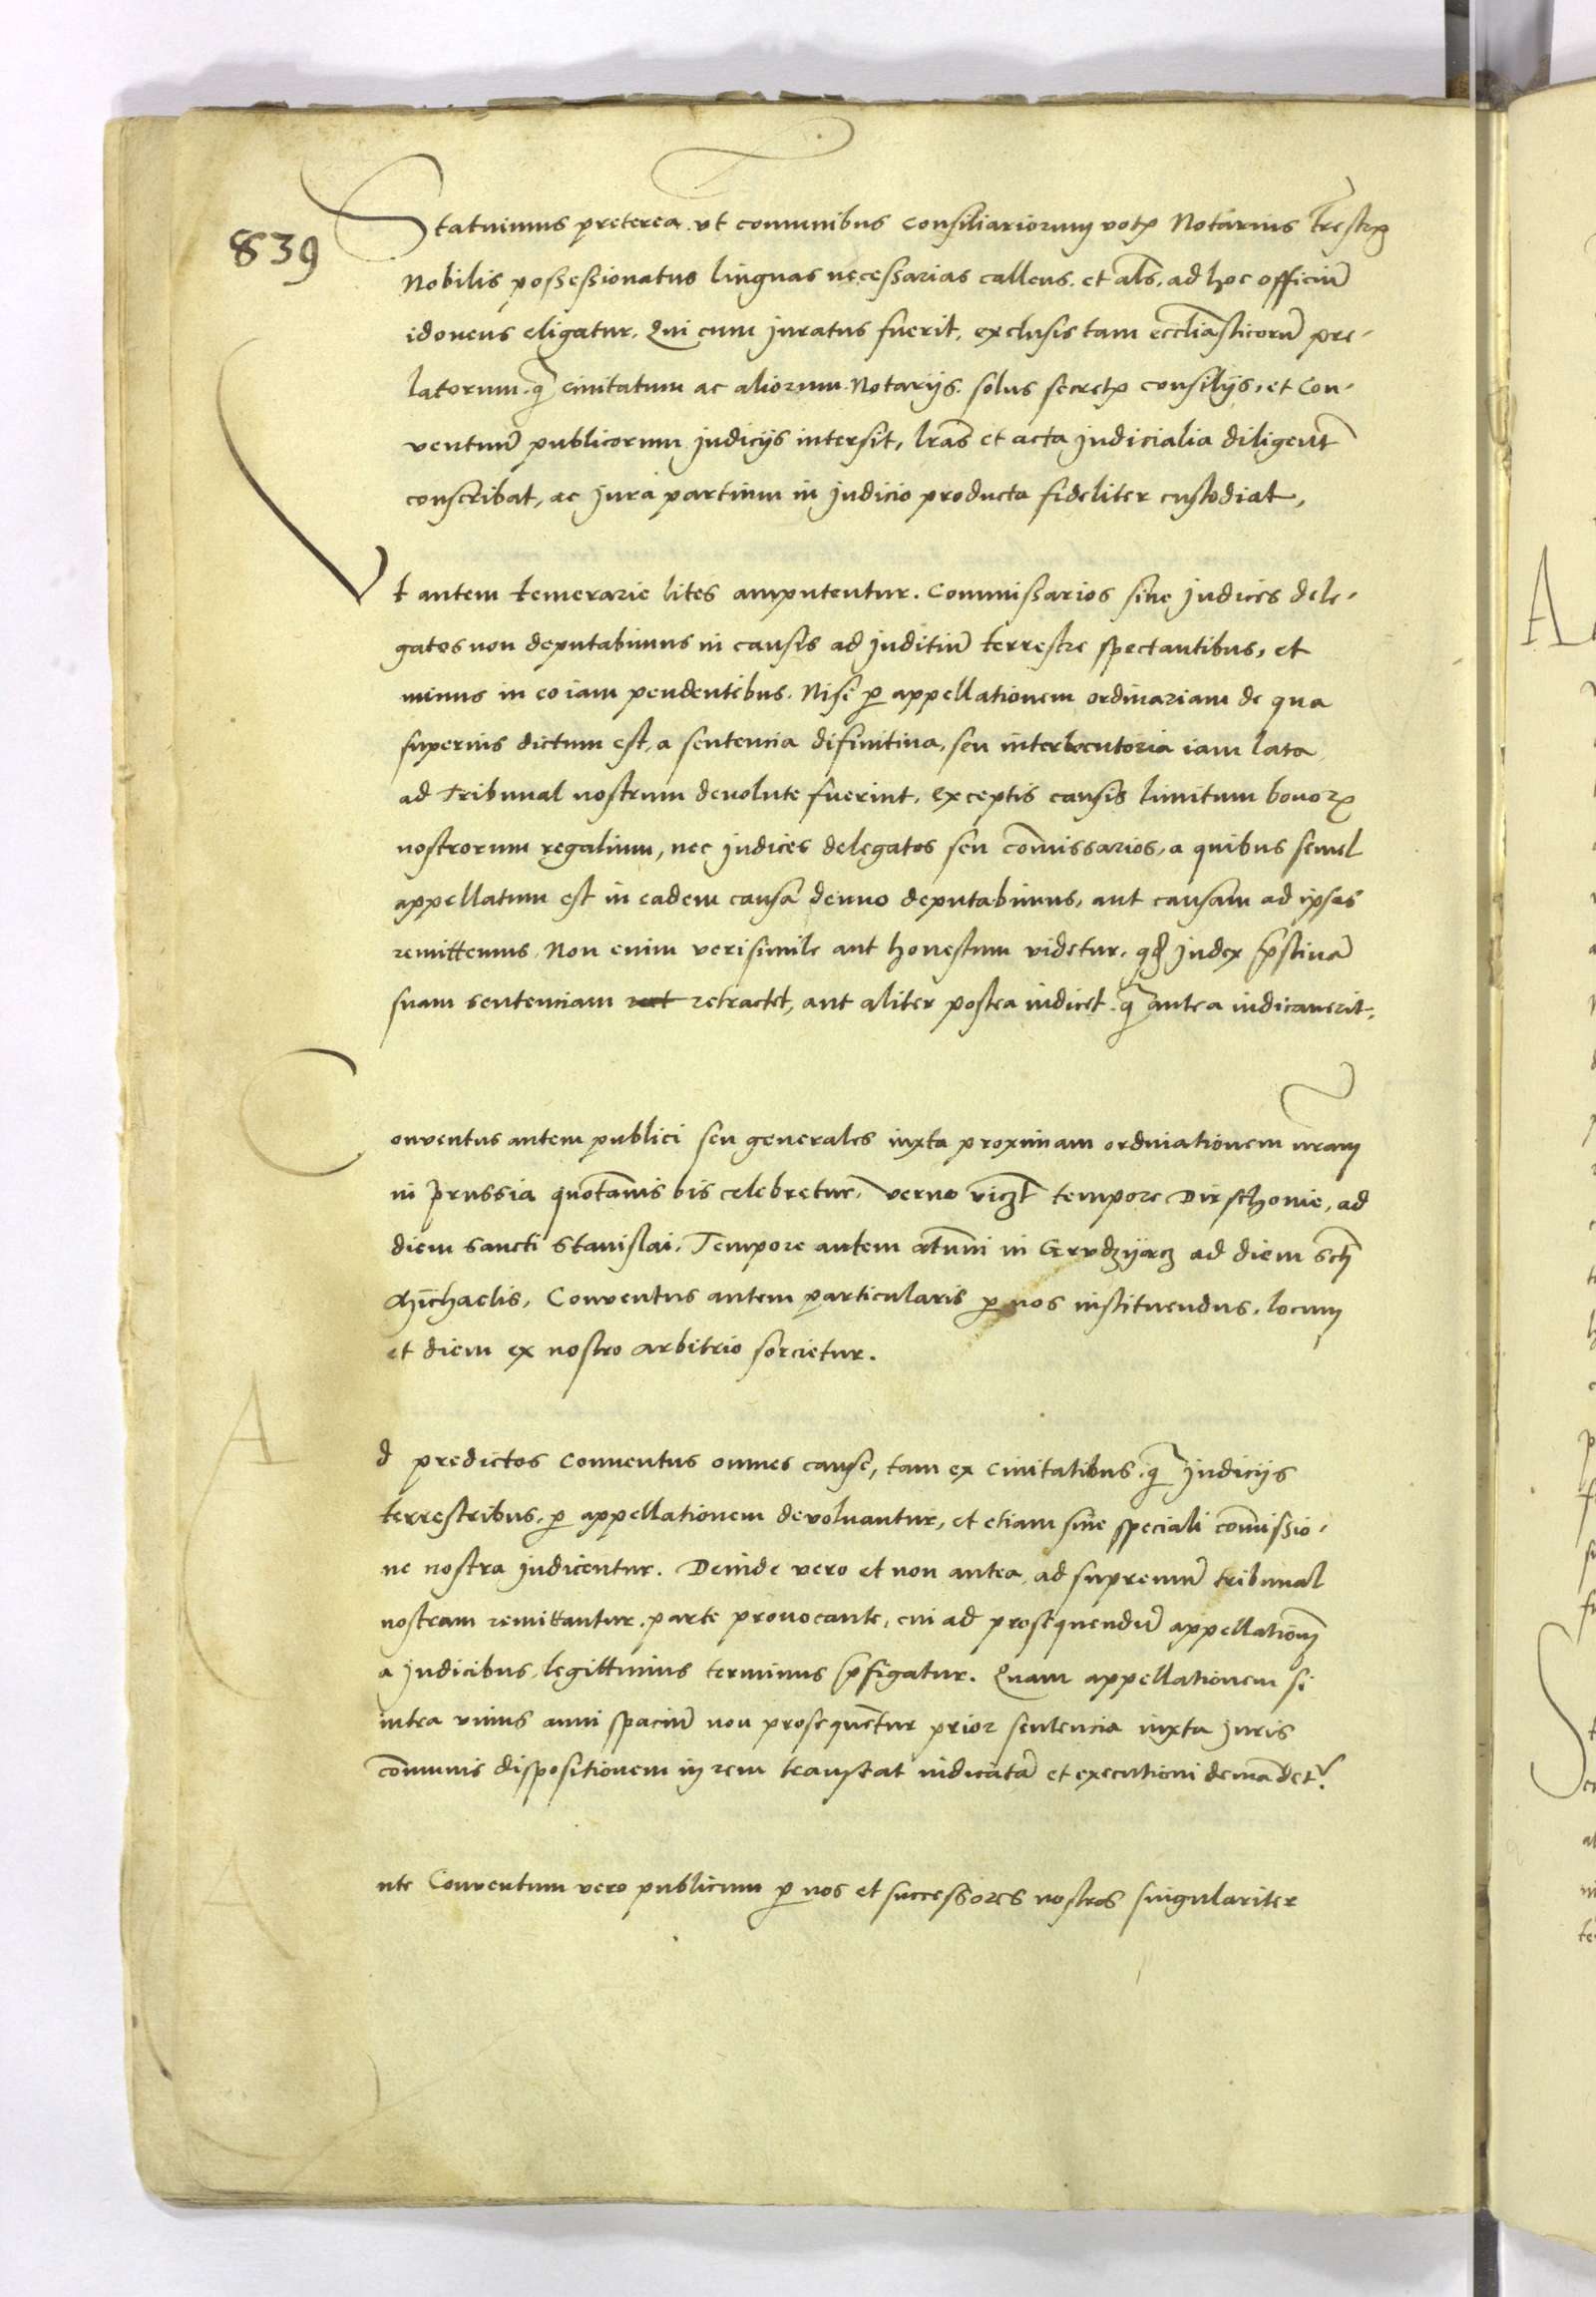 839
Statuimus preterea. vt comunibus Consiliariorum votꝭ Notarius tr̃estrꝭ
Nobilis possessionatus linguas necessarias callens. et als̃. ad hoc officiũ
idoneus eligatur. Qui cum juratus fuerit, exclusis tam eccl̃iasticorũ pre-
latorum. q̃ Ciuitatum ac aliorum Notarijs. solus secretꝭ consilijs, et Con-
ventuũ publicorum judicijs intersit, lr̃as et acta judicialia diligent̃
conscribat, ac jura partium in judicio producta fideliter custodiat,
Vt autem temerarie lites amputentur. Commissarios siue judices dele-
gatos non deputabimus in causis ad juditiũ terrestre spectantibus, et
minus in eo iam pendentibus. Nisi ꝑ appellationem ordinariam de qua
superius dictum est, a sentencia difinitiua, seu interlocutoria iam lata
ad Tribunal nostrum deuolute fuerint. exceptis causis limitum bonoꝝ
nostrorum regalium, nec judices delegatos seu com̃issarios, a quibus semel
appellatum est in eadem causa denuo deputabimus, aut causam ad ipsos
remittemus. Non enim verisimile aut honestum videtur. qđ judex p̃stinã
suam sentenciam ret retractet, aut aliter postea iudicet. q̃ antea iudicauerit.
Conventus autem publici seu generales iuxta proximam ordinationem nr̃am
in Prussia quotan̄is bis celebretur, verno vicꝫt tempore Dirschouie, ad
diem sancti Stanislai. Tempore autem atum̃i in Grudzyącz ad diem sctĩ
Michaelis, Conventus autem particularis ꝑ nos instituendus. locum
et diem ex nostro arbitrio sorcietur.
Ad predictos Conuentus omnes cause, tam ex Ciuitatibus. q̃ judicijs
terrestribus. ꝑ appellationem devoluantur, et etiam sine speciali com̃issio-
ne nostra judicentur. Deinde vero et non antea ad supremũ tribunal
nostram remittantur. parte prouocante, cui ad prosequendũ appellationẽ
a judicibus legittimus terminus p̃figatur. Quam appellationem si
intra vnius anni spaciũ non prosequẽtur prior sentencia iuxta juris
com̃unis dispositionem in rem transeat iudicatã et executioni demãdetr.
Ante Conuentum vero publicum ꝑ nos et successores nostros singulariter